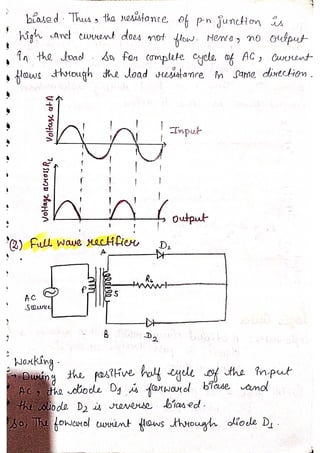 biased. Thus, the resistance of p-n junction is
high and current does not flow. Hence, no output
in the load. So for complete cycle of AC, current
flows through the load resistance in same direction.
Voltage at A
Input
Voltage across RL
Output
(2) Full wave rectifier
A
D1
P
S
RL
AC
Source
B
D2
Working.
→ During the positive half cycle of the input
AC, the diode D1 is forward biase and
the diode D2 is reverse biased.
So, The foward current flows through diode D1.